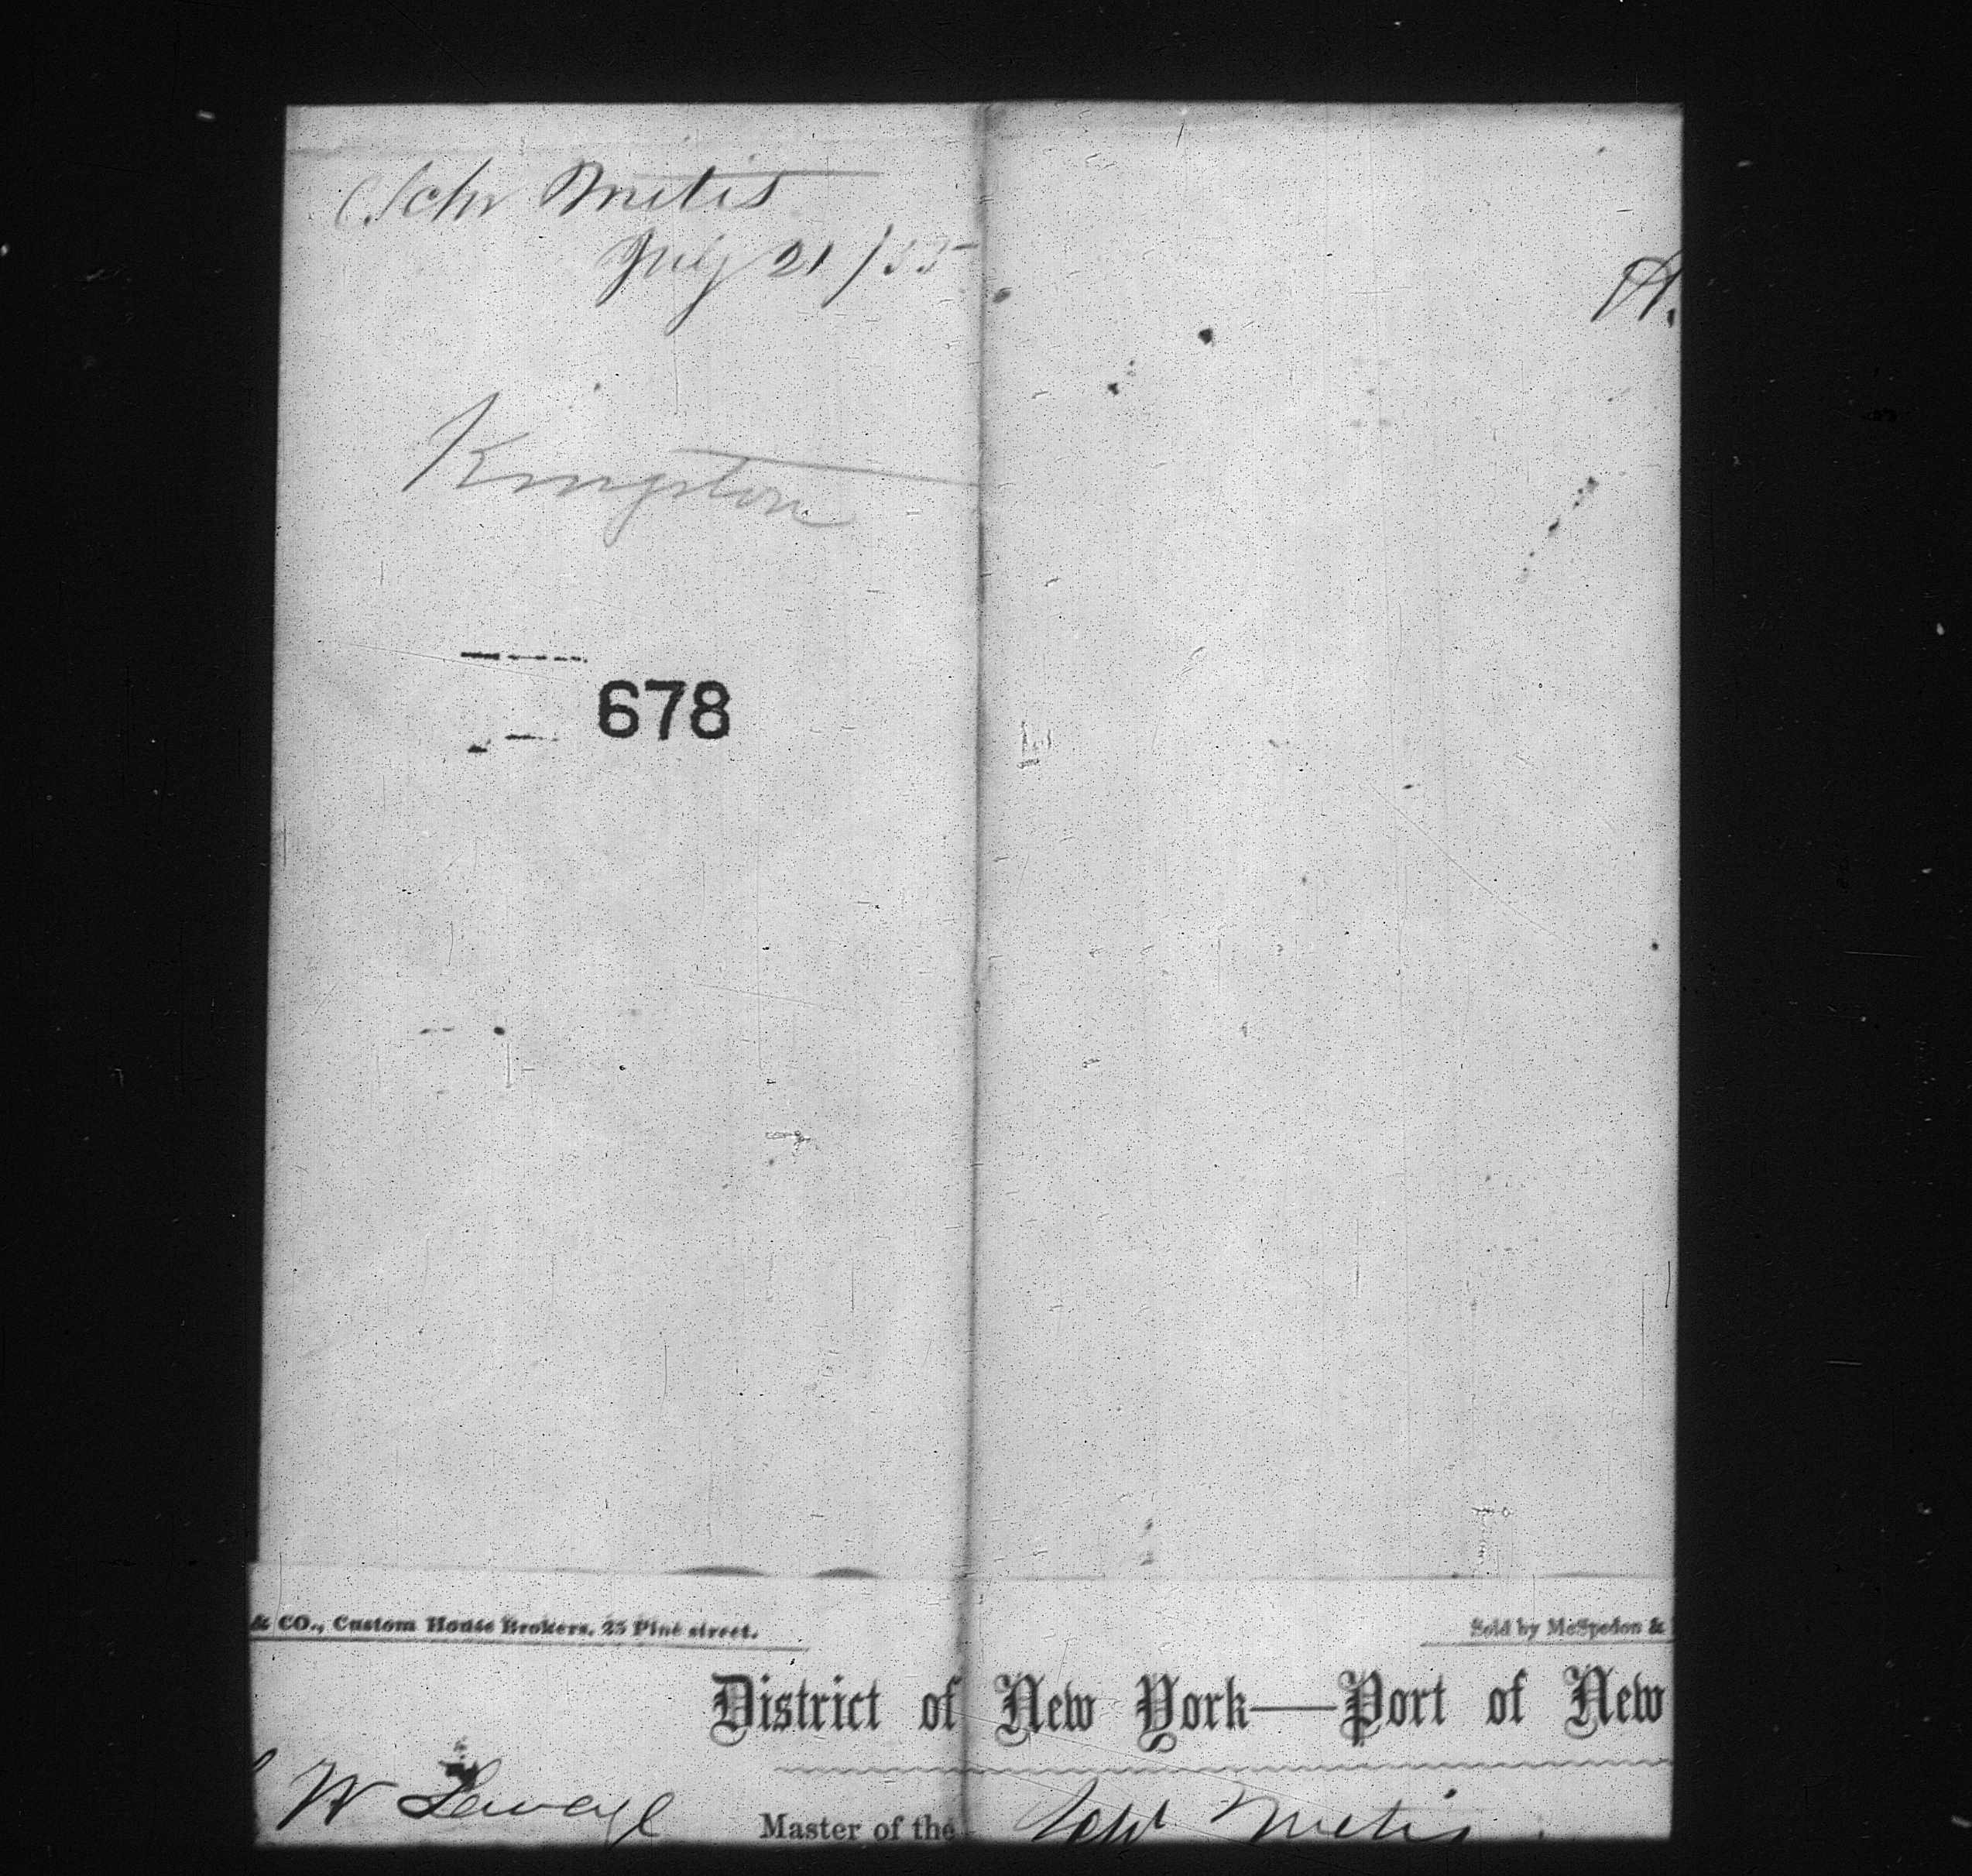 Schr Metis
July 21 / 55
A.
Kingston
678
& CO., Custom House Brokers, 25 Pine street.
Sold by McSpedon &
District of New York—Port of New
W Savage
Master of the Schr Metis